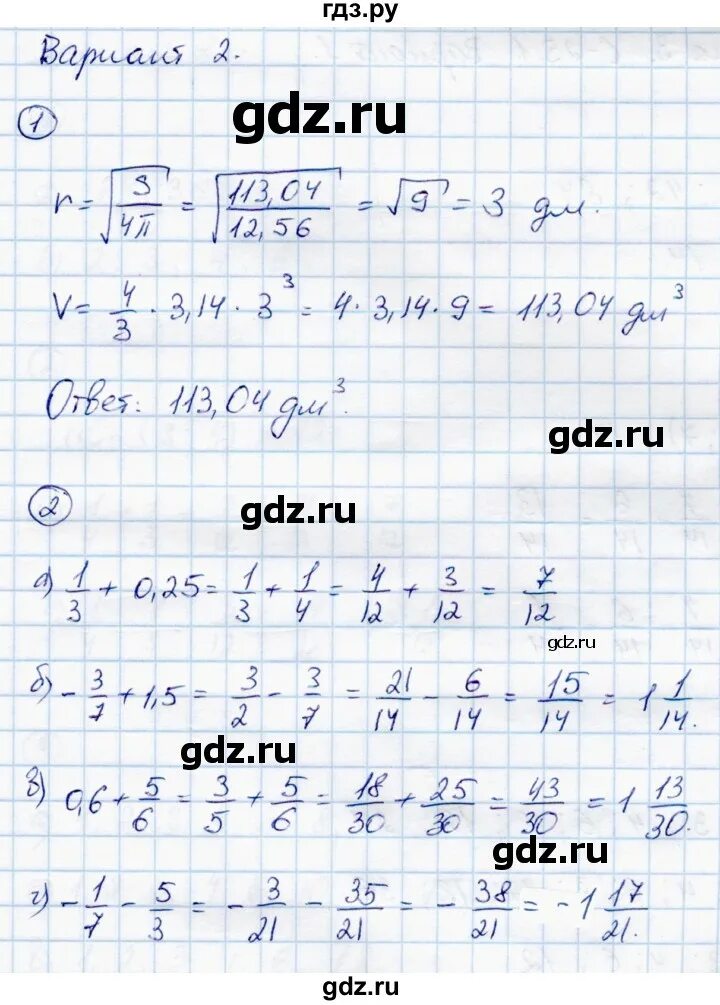 гдз.ру
Вариант 2.
gdz.ru
1
r = √(S/4π) = √(113,04/12,56) = √9 = 3 дм.
V = 4/3 · 3,14 · 3³ = 4 · 3,14 · 9 = 113,04 дм³
Ответ: 113,04 дм³.
gdz.ru
2
gdz.ru
а) 1/3 + 0,25 = 1/3 + 1/4 = 4/12 + 3/12 = 7/12
gdz.ru
б) -3/7 + 1,5 = 3/2 - 3/7 = 21/14 - 6/14 = 15/14 = 1 1/14.
gdz.ru
в) 0,6 + 5/6 = 3/5 + 5/6 = 18/30 + 25/30 = 43/30 = 1 13/30.
gdz.ru
г) -1/7 - 5/3 = -3/21 - 35/21 = -38/21 = -1 17/21.
gdz.ru